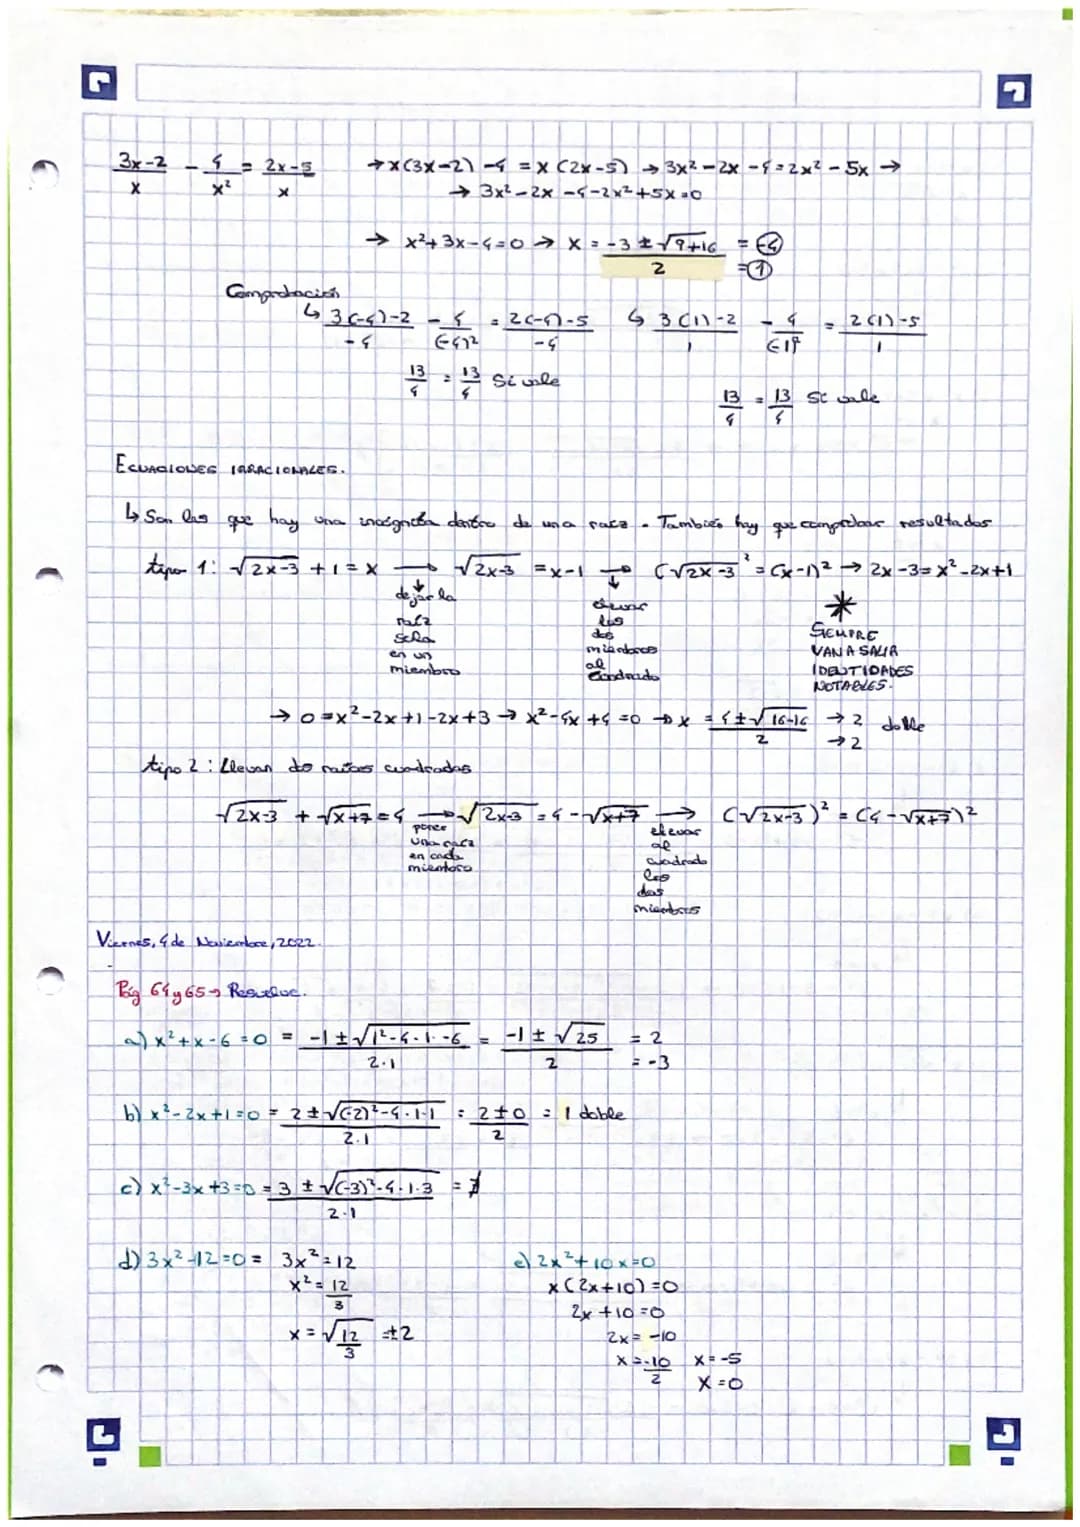 (3x-2)/x - 4/x² = (2x-5)/x → x(3x-2) -4 = x(2x-5) → 3x²-2x-4=2x²-5x →
→ 3x²-2x-4-2x²+5x=0
→ x²+3x-4=0 → x = (-3±√9+16)/2 = -4
= 1
Comprobación
↳ (3(-4)-2)/-4 - 4/(-4)² = (2(-4)-5)/-4 ↳ (3(1)-2)/1 - 4/(-1)² = (2(1)-5)/1
13/4 = 13/4 Si vale
13/4 = 13/4 Si vale
ECUACIONES IRRACIONALES.
↳ Son las que hay una incógnita dentro de una raíz. También hay que comprobar resultados
tipo 1: √2x-3 +1=x → √2x-3 =x-1 → (√2x-3)² = (x-1)² → 2x-3=x²-2x+1
dejar la
raíz
sola
en un
miembro
elevar
los
dos
miembros
al
cuadrado
*
SIEMPRE
VAN A SALIR
IDENTIDADES
NOTABLES.
→ 0=x²-2x+1-2x+3 → x²-4x+4=0 → x = (4±√16-16)/2 → 2 doble
→ 2
tipo 2: Llevan dos raíces cuadradas
√2x-3 + √x+7=4 → √2x-3 =4-√x+7 → (√2x-3)² = (4-√x+7)²
poner
una raíz
en cada
miembro
elevar
al
cuadrado
los
dos
miembros
Viernes, 4 de Noviembre, 2022.
Pág 64 y 65 → Resuelve.
a) x²+x-6=0 = (-1±√1²-4·1·-6)/2·1 = (-1±√25)/2 = 2
= -3
b) x²-2x+1=0 = (2±√(-2)²-4·1·1)/2·1 = (2±0)/2 = 1 doble
c) x²-3x+3=0 = (3±√(-3)²-4·1·3)/2·1 = ∄
d) 3x²-12=0 = 3x²=12
x²=12/3
x=√12/3 =±2
e) 2x²+10x=0
x(2x+10)=0
2x+10=0
2x=-10
x=-10/2 x=-5
x=0